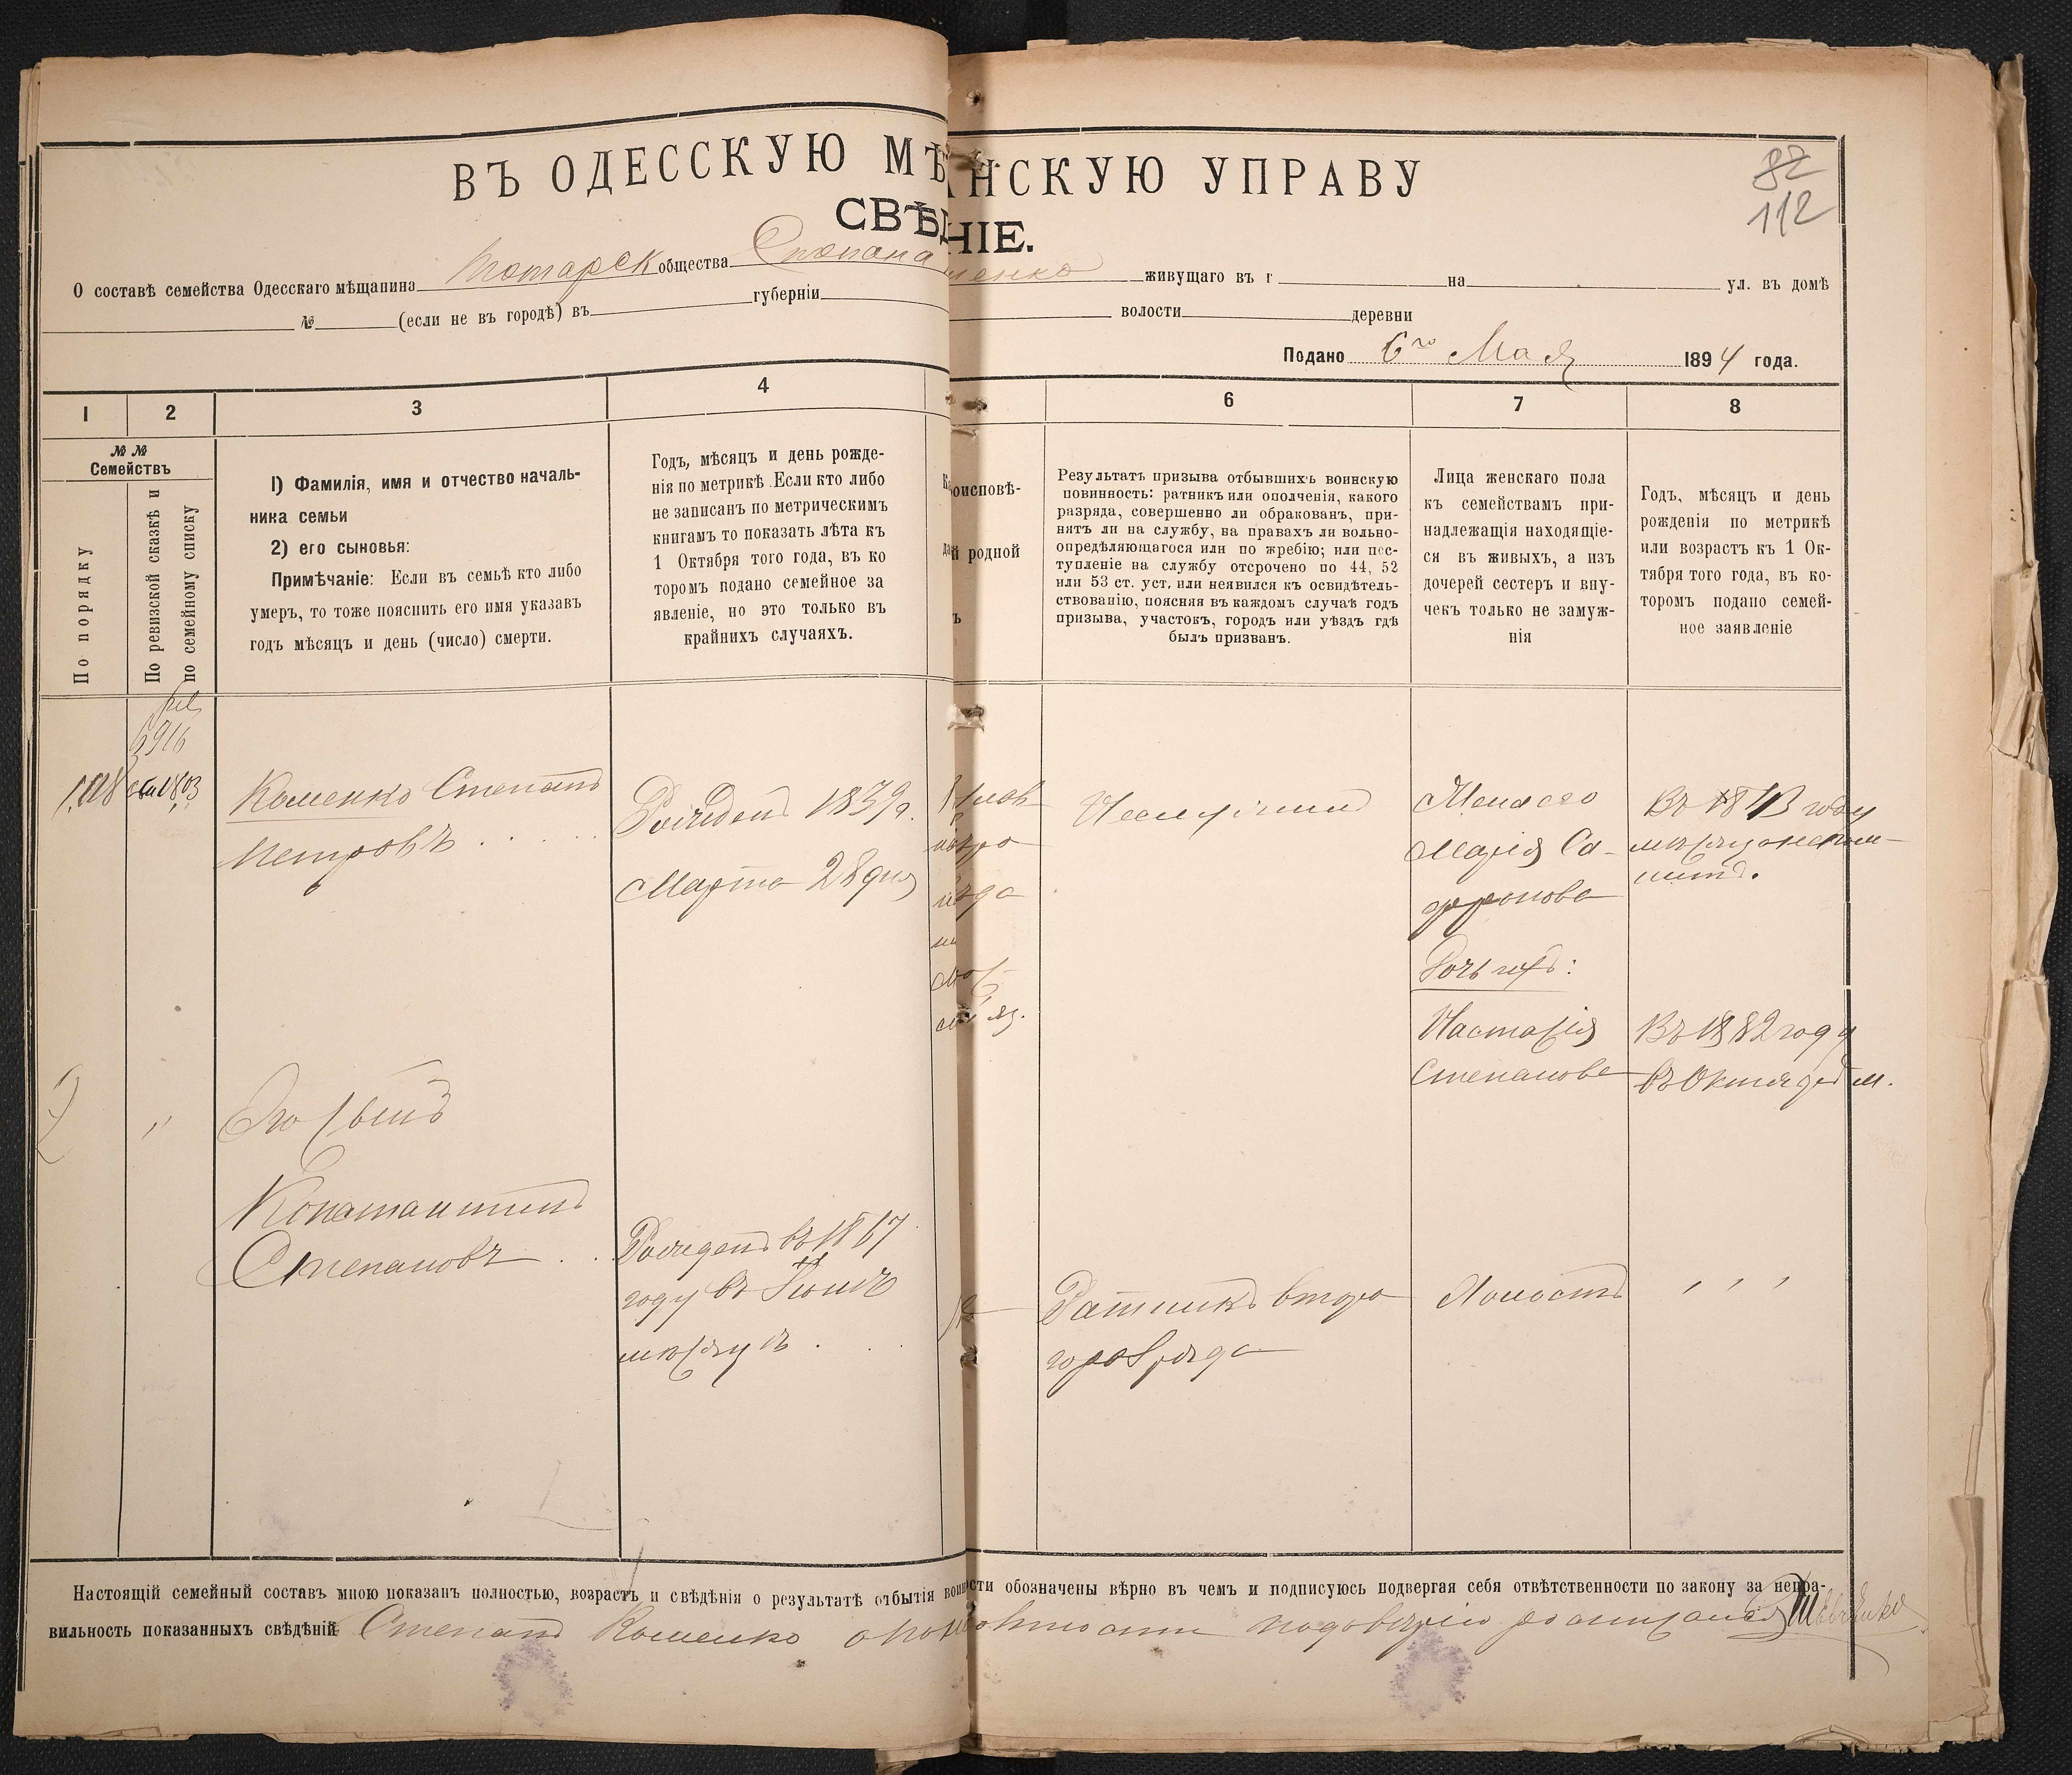 ВЪ ОДЕССКУЮ МѢ АНСКУЮ УПРАВУ
СВѢД НІЕ.
82
112
О составѣ семейства Одесскаго мѣщанина общества Степана енко живущаго въ г на ул. въ домѣ
№ (если не въ городѣ) въ губерніи волости деревни
Подано 6го Мая 1894 года.
1 2 3 4 6 7 8
№№
Семействъ
По порядку
По ревизской сказкѣ и
по семейному списку
1) Фамилія, имя и отчество началь-
ника семьи
2) его сыновья:
Примѣчаніе: Если въ семьѣ кто либо
умеръ, то тоже пояснить его имя указавъ
годъ мѣсяцъ и день (число) смерти.
Годъ, мѣсяцъ и день рожде-
нія по метрикѣ Если кто либо
не записанъ по метрическимъ
книгамъ то показать лѣта къ
1 Октября того года, въ ко
торомъ подано семейное за
явленіе, но это только въ
крайнихъ случаяхъ.
оисповѣ-
й родной
ъ
Результатъ призыва отбывшихъ воинскую
повинность: ратникъ или ополченія, какого
разряда, совершенно ли обракованъ, при-
нятъ ли на службу, на правахъ ли вольно-
опредѣляющагося или по жребію; или пос-
тупленіе на службу отсрочено по 44, 52
или 53 ст. уст. или неявился къ освидѣтель-
ствованію, поясняя въ каждомъ случаѣ годъ
призыва, участокъ, городъ или уѣздъ гдѣ
былъ призванъ.
Лица женскаго пола
къ семействамъ при-
надлежащія находящіе-
ся въ живыхъ, а изъ
дочерей сестеръ и вну-
чекъ только не замуж-
нія
Годъ, мѣсяцъ и день
рожденія по метрикѣ
или возрастъ къ 1 Ок-
тября того года, въ ко-
торомъ подано семей-
ное заявленіе
6916
Кошенко Степанъ
Петровъ
Рожденъ 1839г.
Марта 28 дня
Жена его
Марія Са-
фронова
Дочь ихъ:
Настасія
Степанова
Въ 1843 году
мѣсяца не пом-
нитъ.
Въ 1882 году
въ Октябрѣ м.
2 "
Его сынъ
Константинъ
Степановъ
Рожденъ въ 1867
году въ Іюнѣ
мѣсяцѣ
Ратникъ второ
го розряда
Холостъ
" " "
Настоящій семейный составъ мною показанъ полностью, возрастъ и свѣдѣнія о результатѣ отбытія воин сти обозначены вѣрно въ чемъ и подписуюсь подвергая себя отвѣтственности по закону за непра-
вильность показанныхъ свѣдѣній Степанъ Кошенко